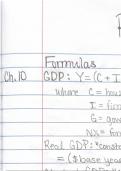 Formulas
Ch.10 GDP: Y=(C+I
where C=hou
I=firm
G=gov
NX=for
Real GDP: *const
=($base yea